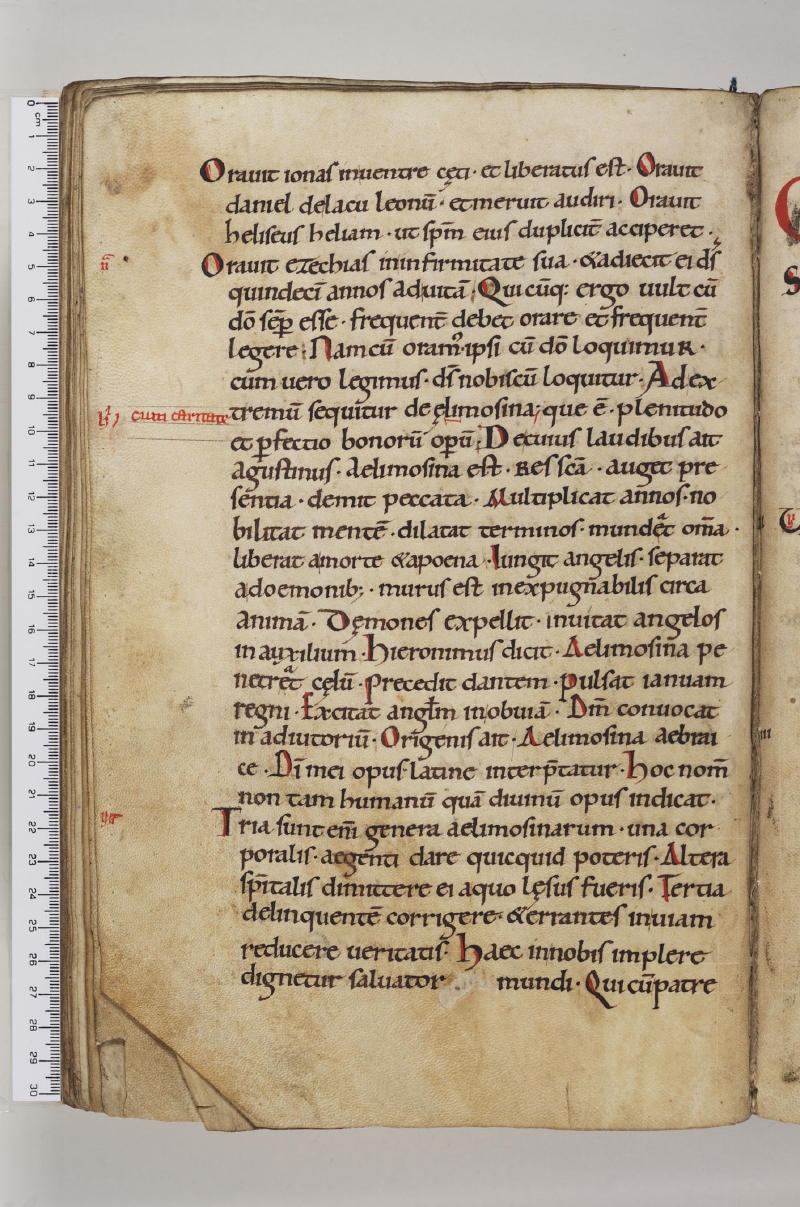 Orauit ionas inuentre cęti · et liberatus est · Orauit
daniel delacu leonū · et meruit audiri · Orauit
heliseus heliam · ut sp̄m eius duplicit̄ acciperet ·
Orauit ezechias in infirmitate sua · & adiecit ei ds̄
quindecī annos aduitā ; Qui cūq: ergo uult cū
dō sēp esse · frequent̄ debet orare et frequent̄
legere ; Nam cū oram᷒ · ipsi cū dō loquimur ·
cum uero legimus · ds̄ nobiscū loquitur · Ad ex
tremū sequitur de ęlimosina; que ē · plenitudo
et ꝑfectio bonorū opū ; De cuius laudibus ait
agustinus · Aelimosina est · res scā · auget pre
sentia · demit peccata · Multiplicat annos · no
bilitat mentē · dilatat terminos · mundet om̄a ·
liberat amorte & apoena · Iungit angelis · separat
ademonib; · murus est inexpugnabilis circa
animā · Demones expellit · inuitat angelos
in auxilium · Hieronimus dicit · Aelimosina pe
netret cęlū · precedit dantem · pulsat ianuam
regni · Excitat angl̄m inobuiā · Dn̄m conuocat
in adiutoriū · Origenis ait · Aelimosina aebrai
ce · Dī mei opus · latine interp̄tatur · Hoc nom̄
non tam humanū quā diuinū opus indicat ·
Tria sunt em̄ genera aelimosinarum · una cor
poralis · aegenti dare quicquid poteris · Altera
sp̄italis dimittere ei aquo lęsus fueris · Tertia
delinquentē corrigere · & errantes inuiam
reducere ueritatis · Haec innobis implere
dignetur saluator mundi · Qui cū patre
ii
cum caritate
iii